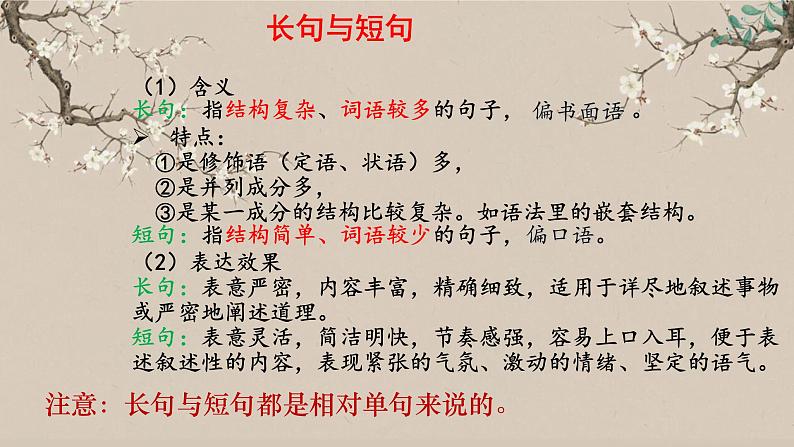 长句与短句
（1）含义
长句：指结构复杂、词语较多的句子，偏书面语。
➢ 特点：
①是修饰语（定语、状语）多，
②是并列成分多，
③是某一成分的结构比较复杂。如语法里的嵌套结构。
短句：指结构简单、词语较少的句子，偏口语。
（2）表达效果
长句：表意严密，内容丰富，精确细致，适用于详尽地叙述事物
或严密地阐述道理。
短句：表意灵活，简洁明快，节奏感强，容易上口入耳，便于表
述叙述性的内容，表现紧张的气氛、激动的情绪、坚定的语气。
注意：长句与短句都是相对单句来说的。